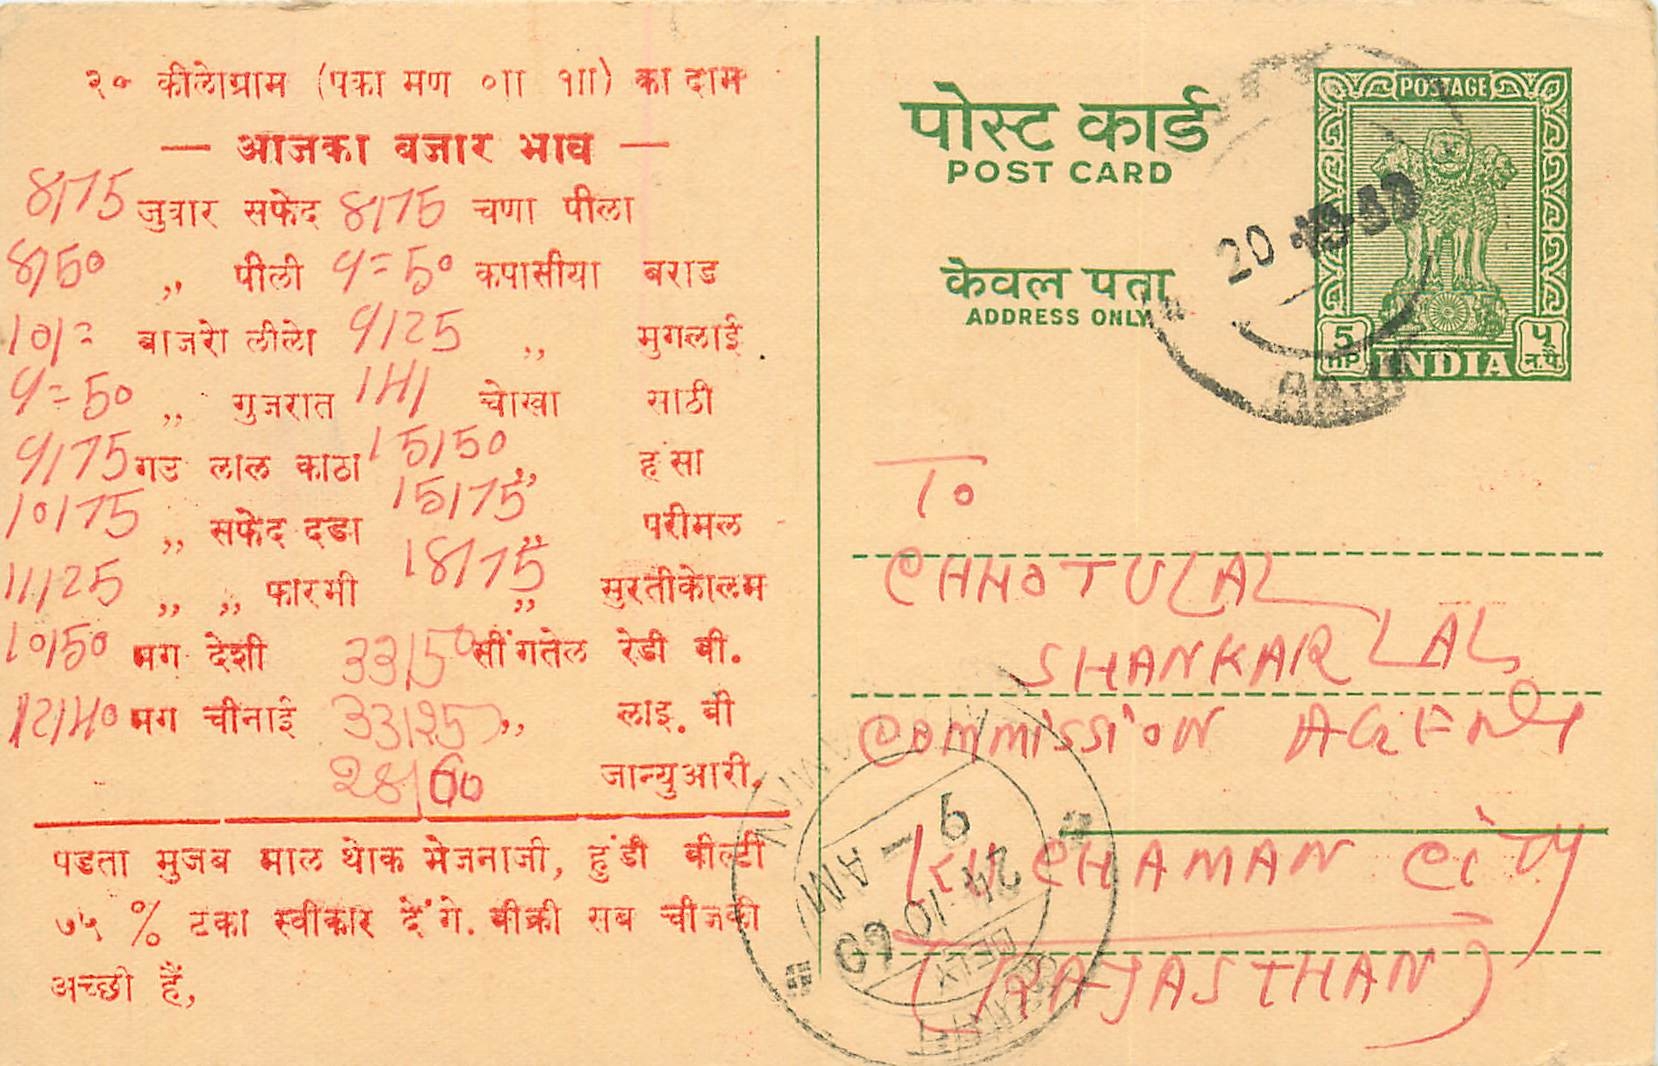 २० कीलोग्राम (पका मण ०॥ १॥) का दाम
— आजका बजार भाव —
8/75 जुवार सफेद 8/75 चणा पीला
8/50 ,, पीली 9=50 कपासीया बराड
10/= बाजरो लीलो 9/25 ,, मुगलाई
9=50 ,, गुजरात चोखा साठी
9/75 गउ लाल काठा 15/50 ,, हंसा
10/75 ,, सफेद दडा 15/75 ,, परीमल
11/25 ,, ,, फारमी 18/75 ,, सुरतीकोलम
10/50 मग देशी 33/50 सींगतेल रेडी बी.
12/40 मग चीनाई 33/25 ,, लाइ. बी
28/60 जान्युआरी.
पडता मुजब माल थोक भेजनाजी, हुंडी बील्टी
७५ % टका स्वीकार देंगे. बीक्री सब चीजकी
अच्छी हैं,
पोस्ट कार्ड
POST CARD
केवल पता
ADDRESS ONLY
POSTAGE
5 NP INDIA ५ न.पै.
20
To
CHHOTULAL
SHANKARLAL
COMMISSION AGENT
KUCHAMAN CITY
(RAJASTHAN)
9 - AM
24.10.60
DELY